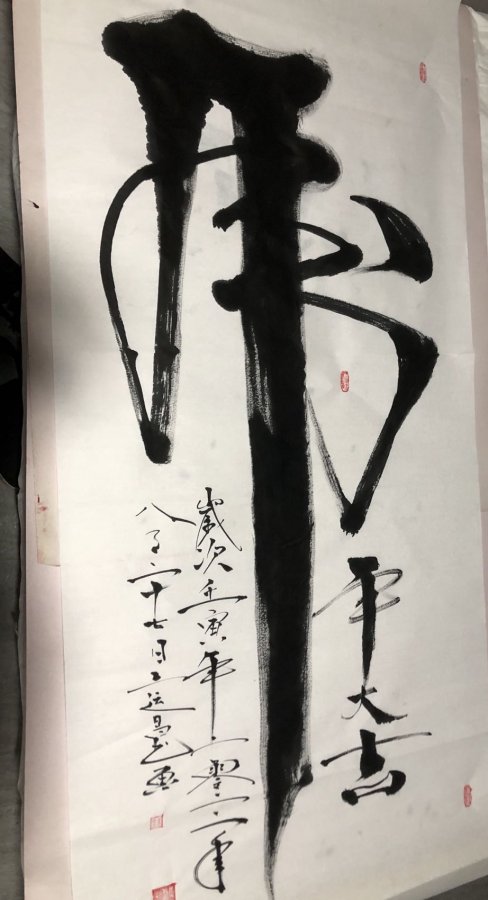 虎
年大吉
歲次壬寅年二零二二年
八月二十七日